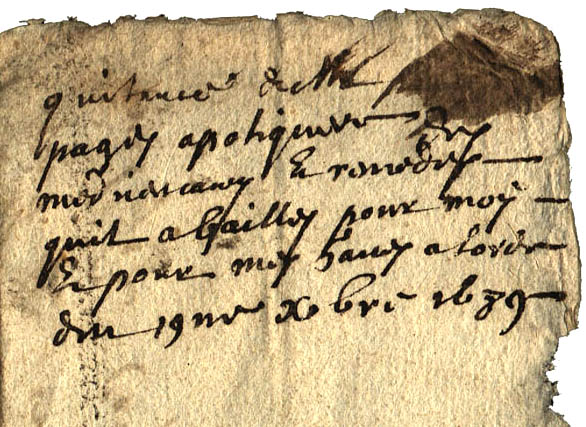 quitance de Mr
pages apotiquere des
medicamans & remedes
quil a bailles pour moy
& pour mes
du 19me Xbre 1639